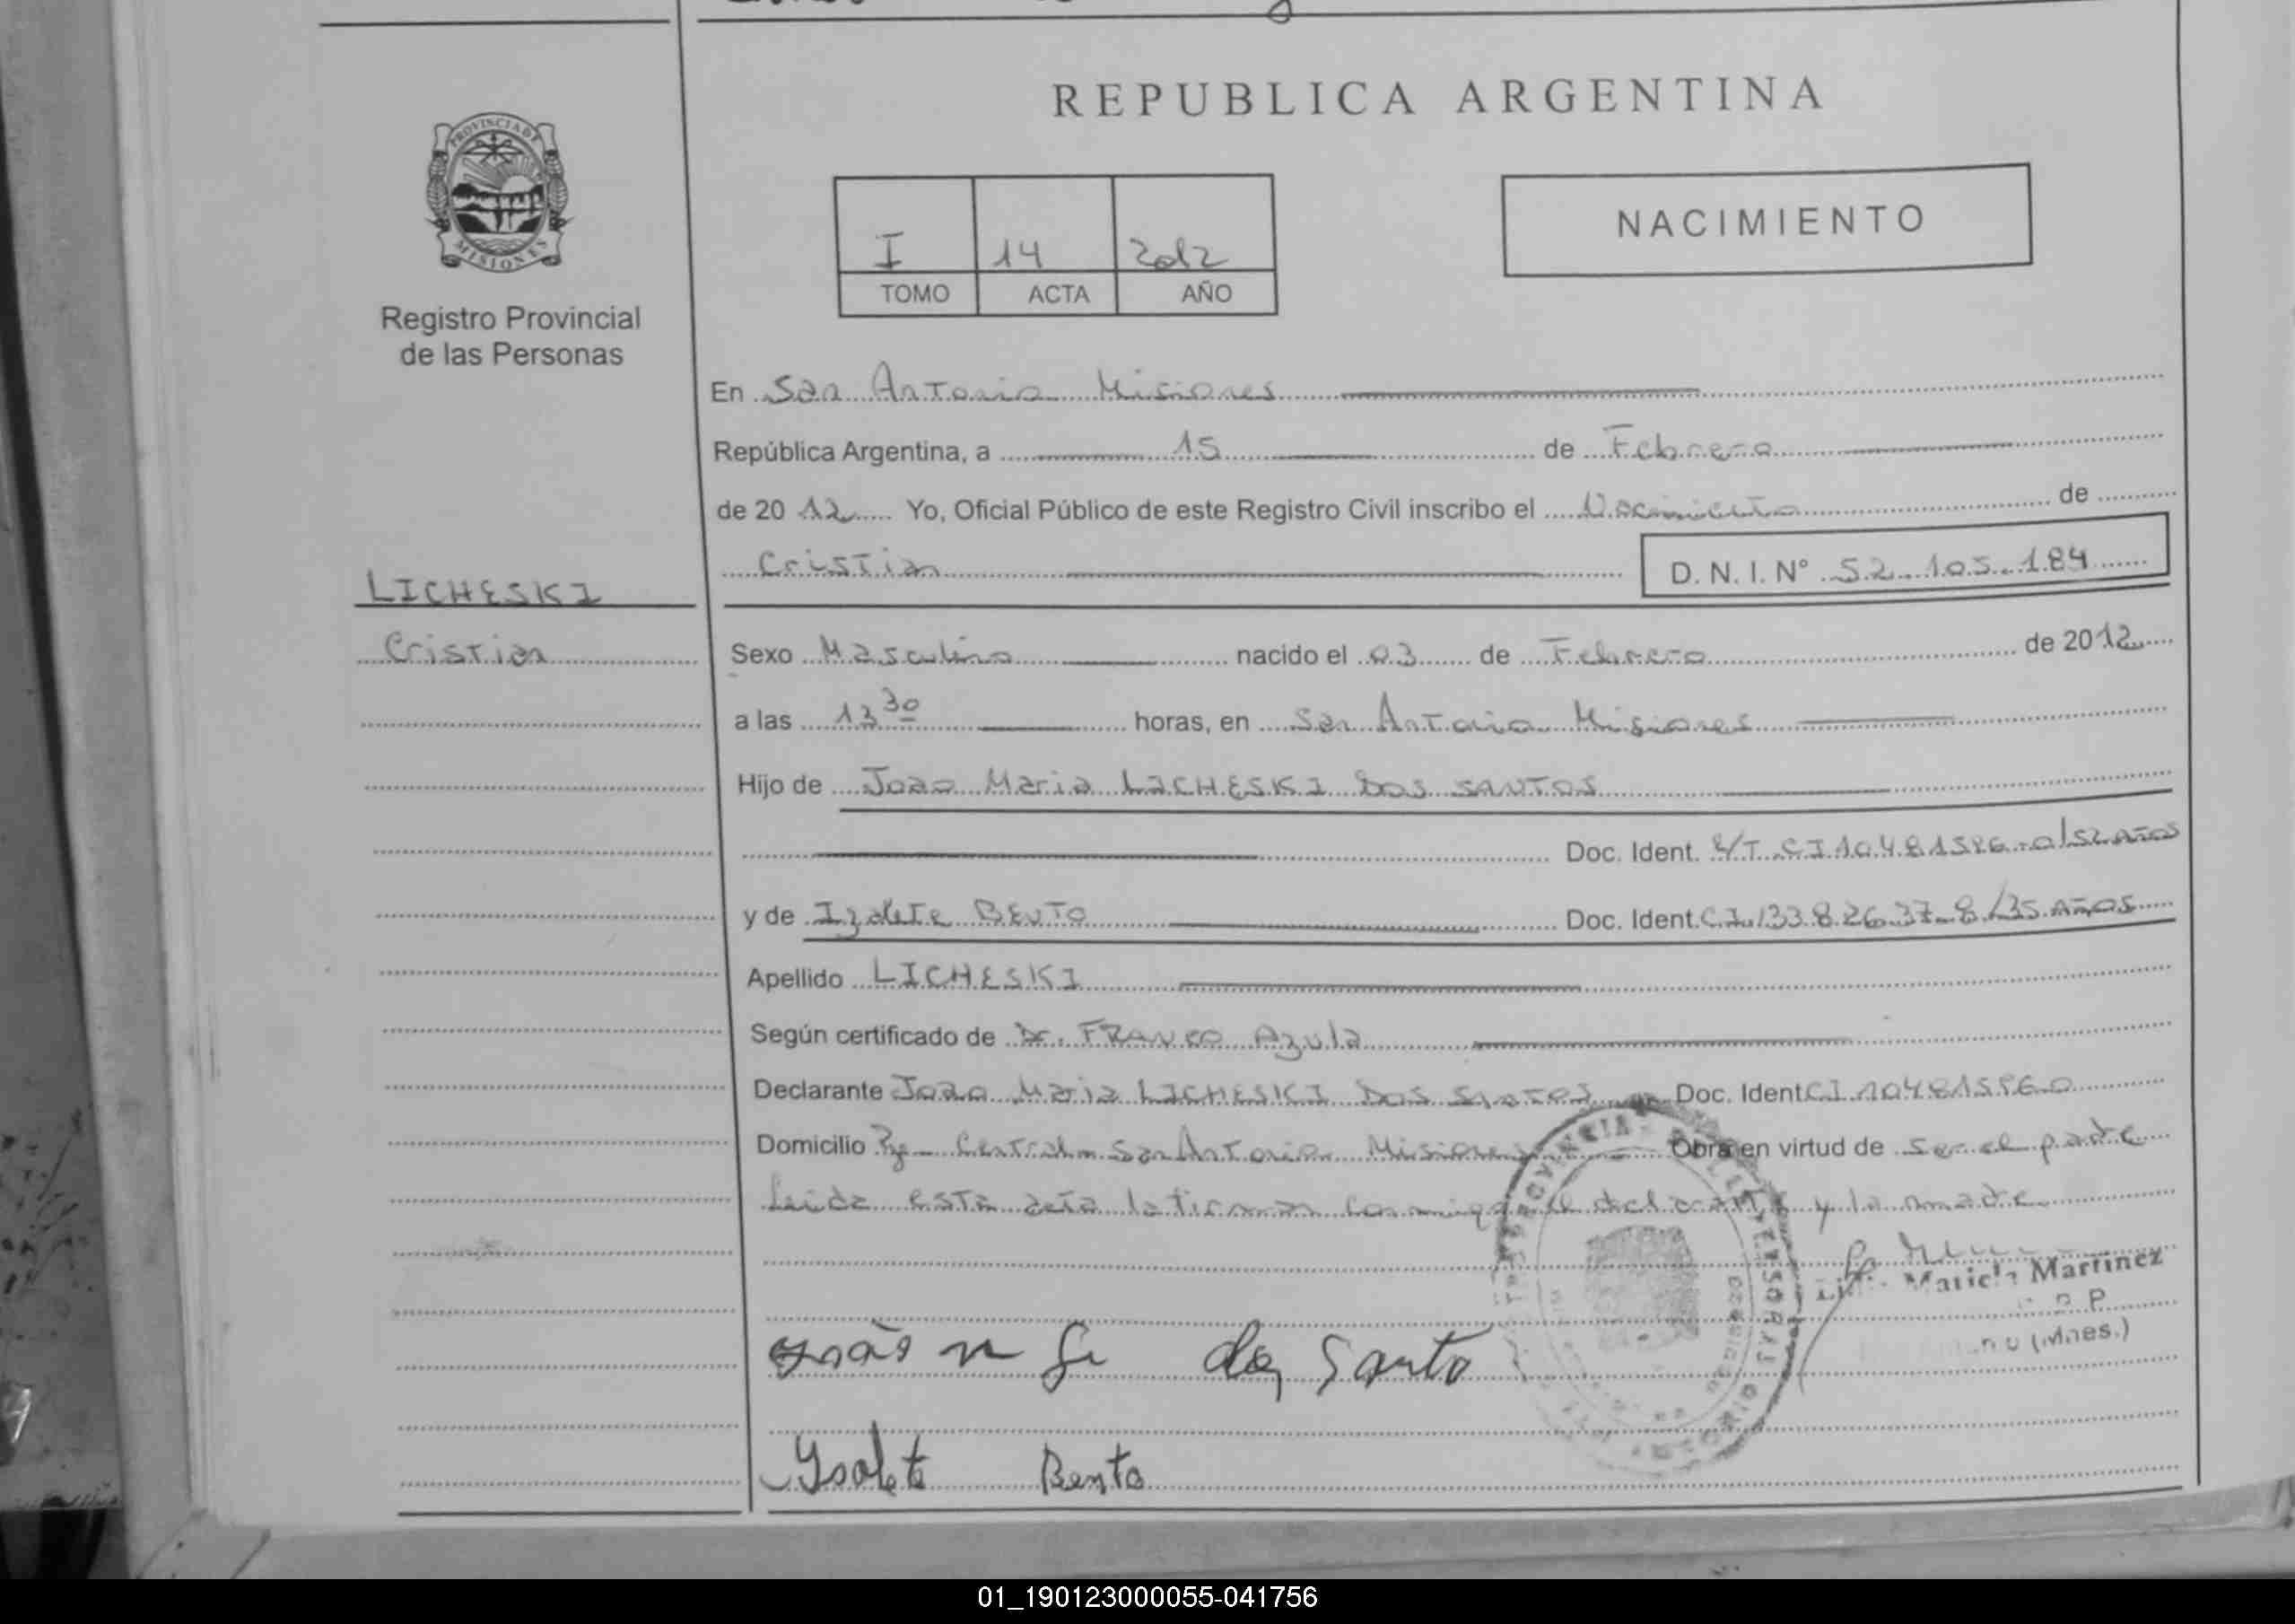 REPUBLICA ARGENTINA
PROVINCIA DE
MISIONES
Registro Provincial
de las Personas
I 14 2012
TOMO ACTA AÑO
NACIMIENTO
En San Antonio Misiones
República Argentina, a 15 de Febrero
de 2012 Yo, Oficial Público de este Registro Civil inscribo el Nacimiento de
Cristian D. N. I. Nº 52.105.184
LICHESKI
Cristian
Sexo Masculino nacido el 03 de Febrero de 2012
a las 13 30 horas, en San Antonio Misiones
Hijo de Joao Maria LICHESKI DOS SANTOS
Doc. Ident. S/T CI 10481586-0/52 Años
y de Izolete BENTO Doc. Ident. C.I./33.826.37-8/35 Años
Apellido LICHESKI
Según certificado de Dr. FRANCO Azula
Declarante Joao Maria LICHESKI DOS SANTOS Doc. Ident CI 104815860
Domicilio Central San Antonio Misiones Obra en virtud de ser el padre
Leida esta acta la firman conmigo el declarante y la madre
Mariela Martinez
dos Santo
Bento
01_190123000055-041756